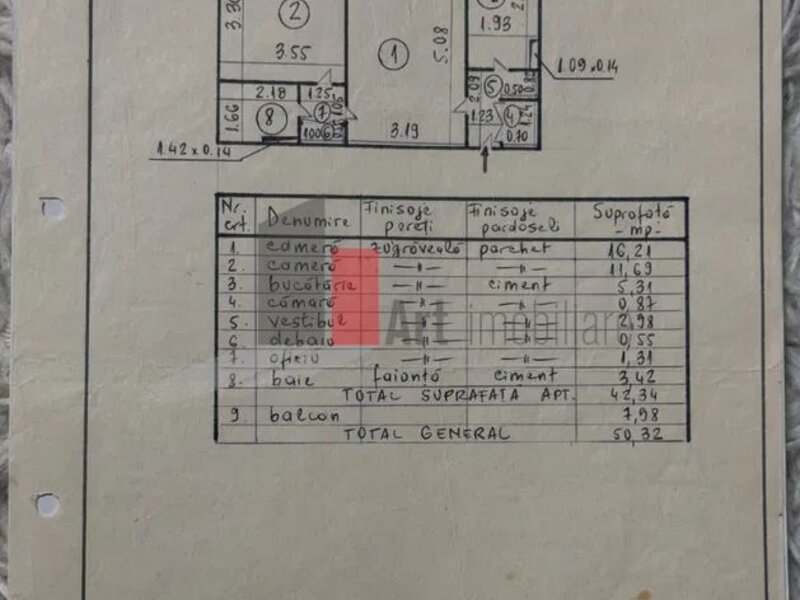 3.30
2
3.55
1
5.08
1.93
1.09 x 0.14
2.18
1.25
1.66
8
7
1.05
1.00
6
3.19
2.09
5
0.50
1.23
4
1.24
0.70
1.42 x 0.14
Nr. crt. Denumire Finisaje pereți Finisaje pardoseli Suprafață - mp -
1. cameră zugrăveală parchet 16,21
2. cameră —"— —"— 11,69
3. bucătărie —"— ciment 5,31
4. cămară —"— —"— 0,87
5. vestibul —"— —"— 2,98
6. debara —"— —"— 0,55
7. oficiu —"— —"— 1,31
8. baie faianță ciment 3,42
TOTAL SUPRAFATA APT. 42,34
9. balcon 7,98
TOTAL GENERAL 50,32
Art imobiliare